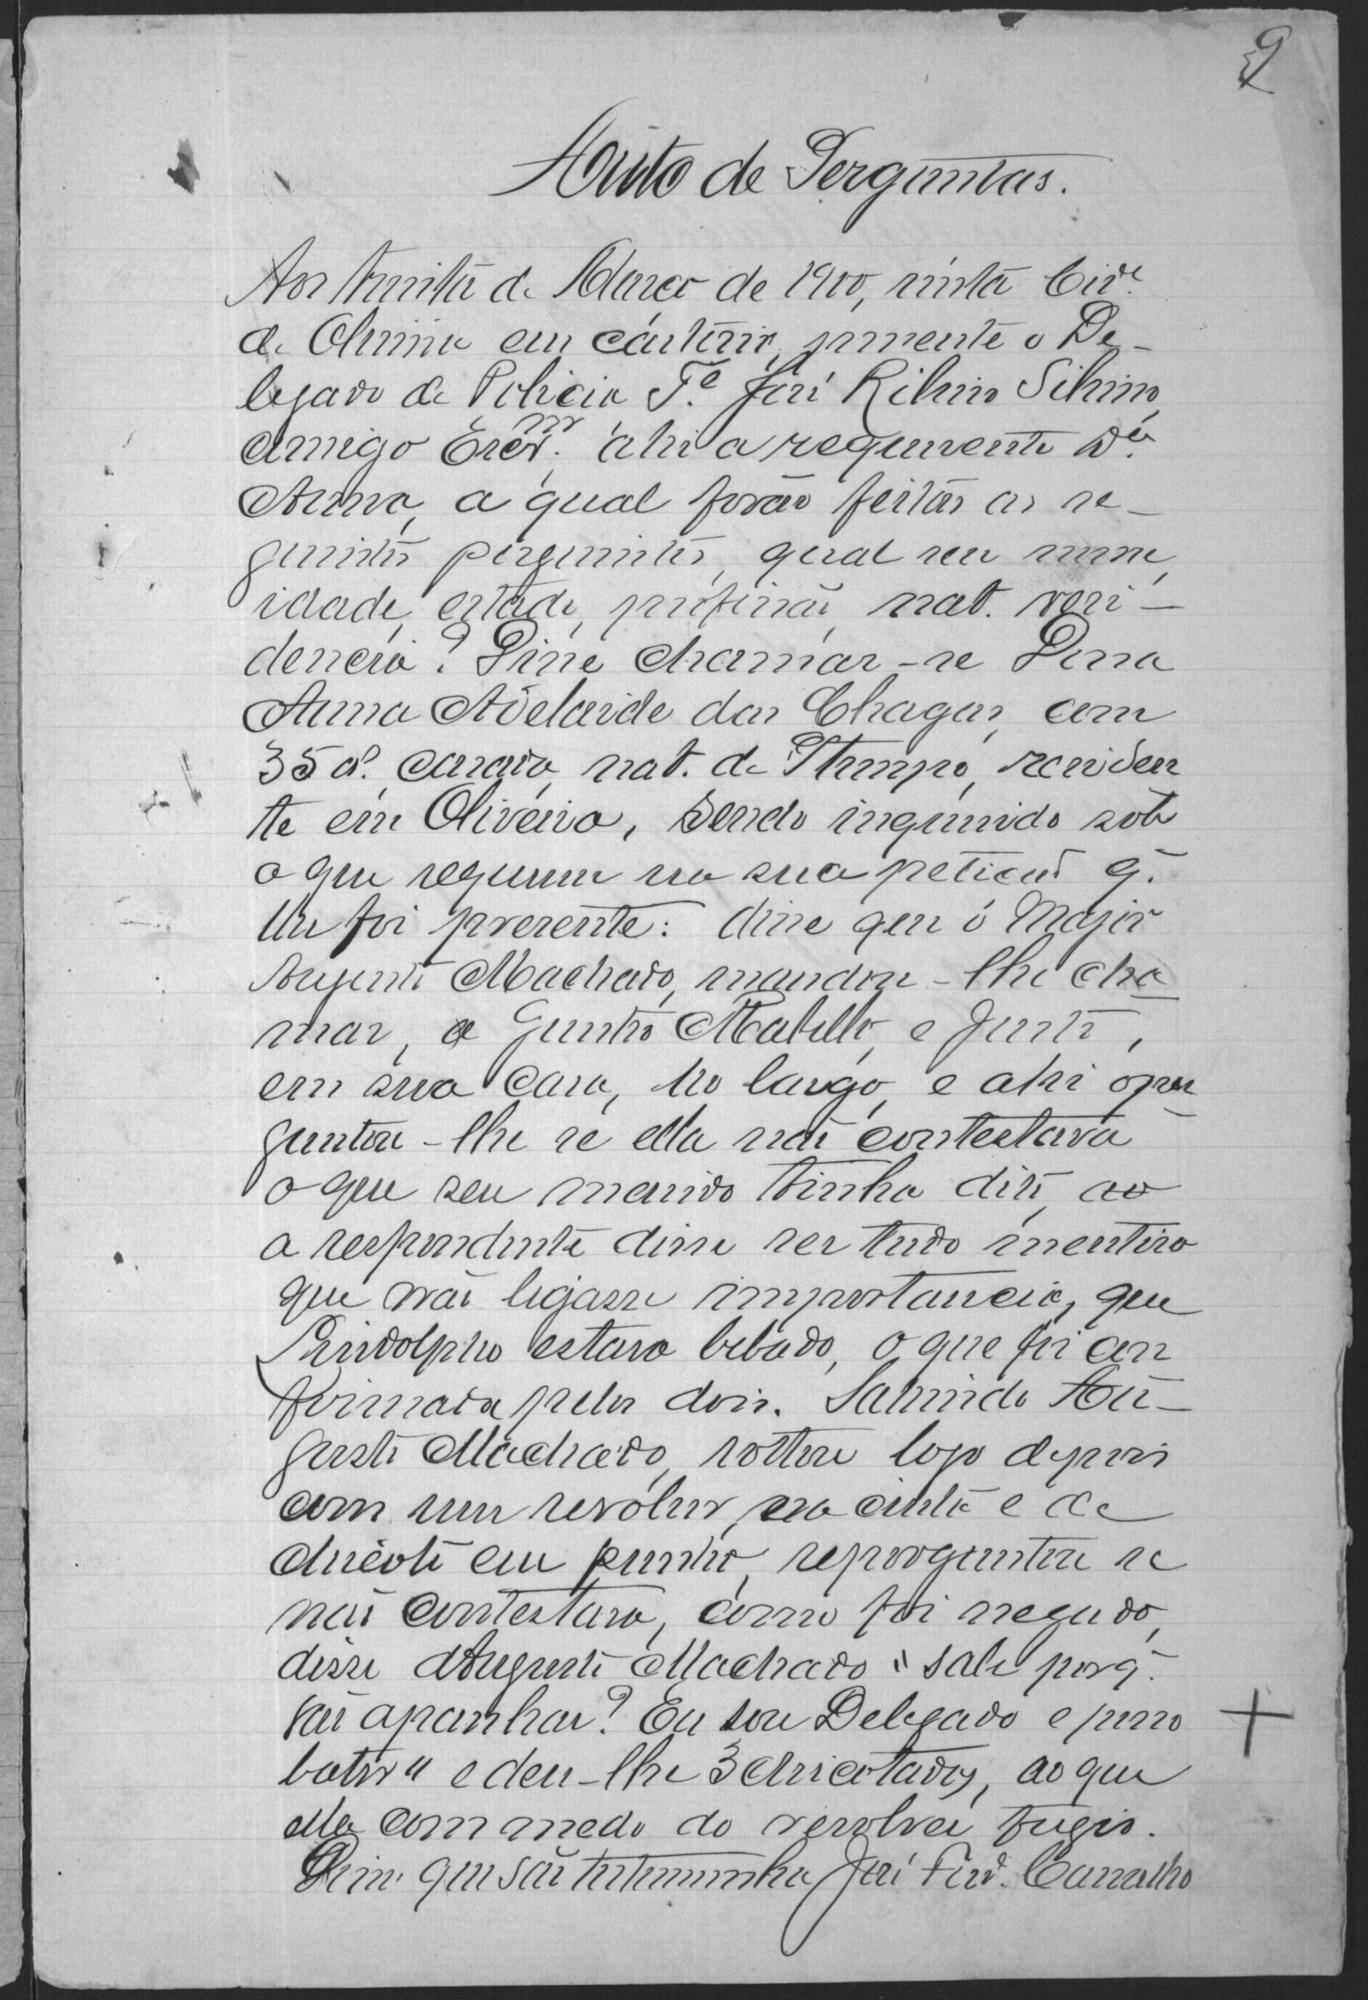 9
Auto de Perguntas.
Aos trinta de Março de 1900, nésta Cidᵉ
de Oliveira em cartorio, presente o De-
legado de Policia Tᵉ José Ribeiro Silvino,
comigo Escrᵐ. ahi a requerente Dᵃ
Anna, a qual forão feitas as se-
guintes perguntas, qual seu nome,
idade, estado, profissão, nat. resi-
dencia? Disse chamar-se Dona
Anna Adelaide das Chagas, com
35 aˢ. casada, nat. de Itempo, residen
te em Oliveira, Sendo inquirido sobe
o que requereu na sua petição q.
lhe foi presente: disse que o Major
Augusto Machado, mandou-lhe cha
mar, a Justo, e
em sua casa, no largo, e ahi oper
guntou-lhe se ella não contestava
o que seu marido tinha dito, ao
a respondente disse ser tudo mentira
que não ligasse importancia, que
Lindolpho estava bebado, o que foi con
firmada pelos dois. Sahindo Au-
gusto Machado, voltou logo depois
com um revolver na cinta e de
chicote em punho, reperguntou se
não contestava, como foi negado,
disse Augusto Machado "sabe porq.
vai apanhar? Eu sou Delegado e posso
bater" e deu-lhe 3 chicotadas, ao que
ella com medo do revolver fugio.
Disse que são testemunha José Ferᵈ. Carvalho